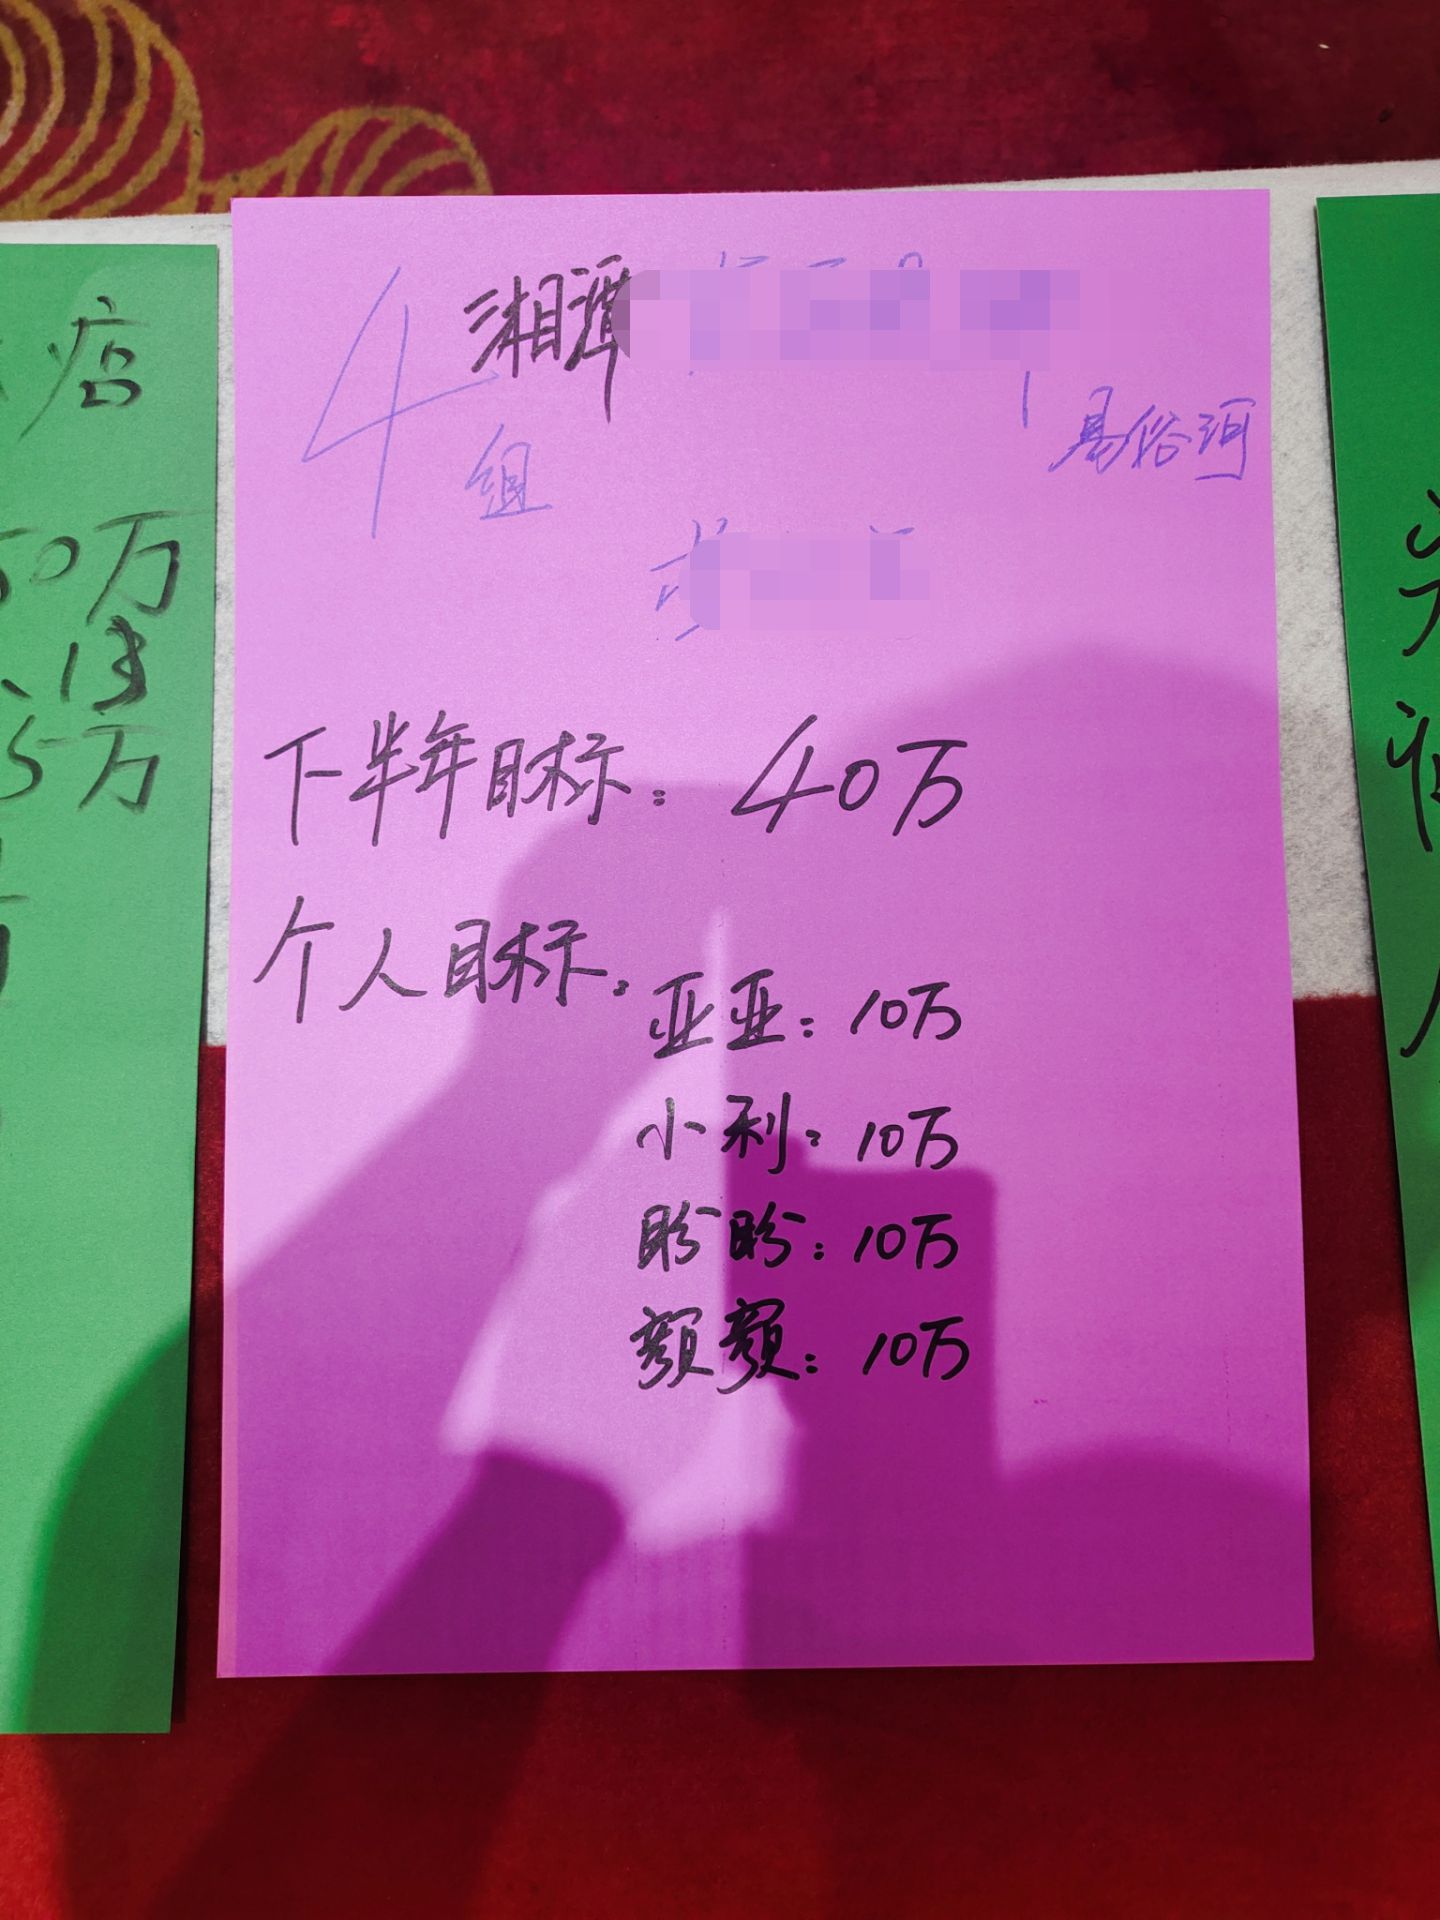 湘潭
4组
易俗河
下半年目标：40万
个人目标：
亚亚：10万
小利：10万
盼盼：10万
额额：10万
店
50万
5万